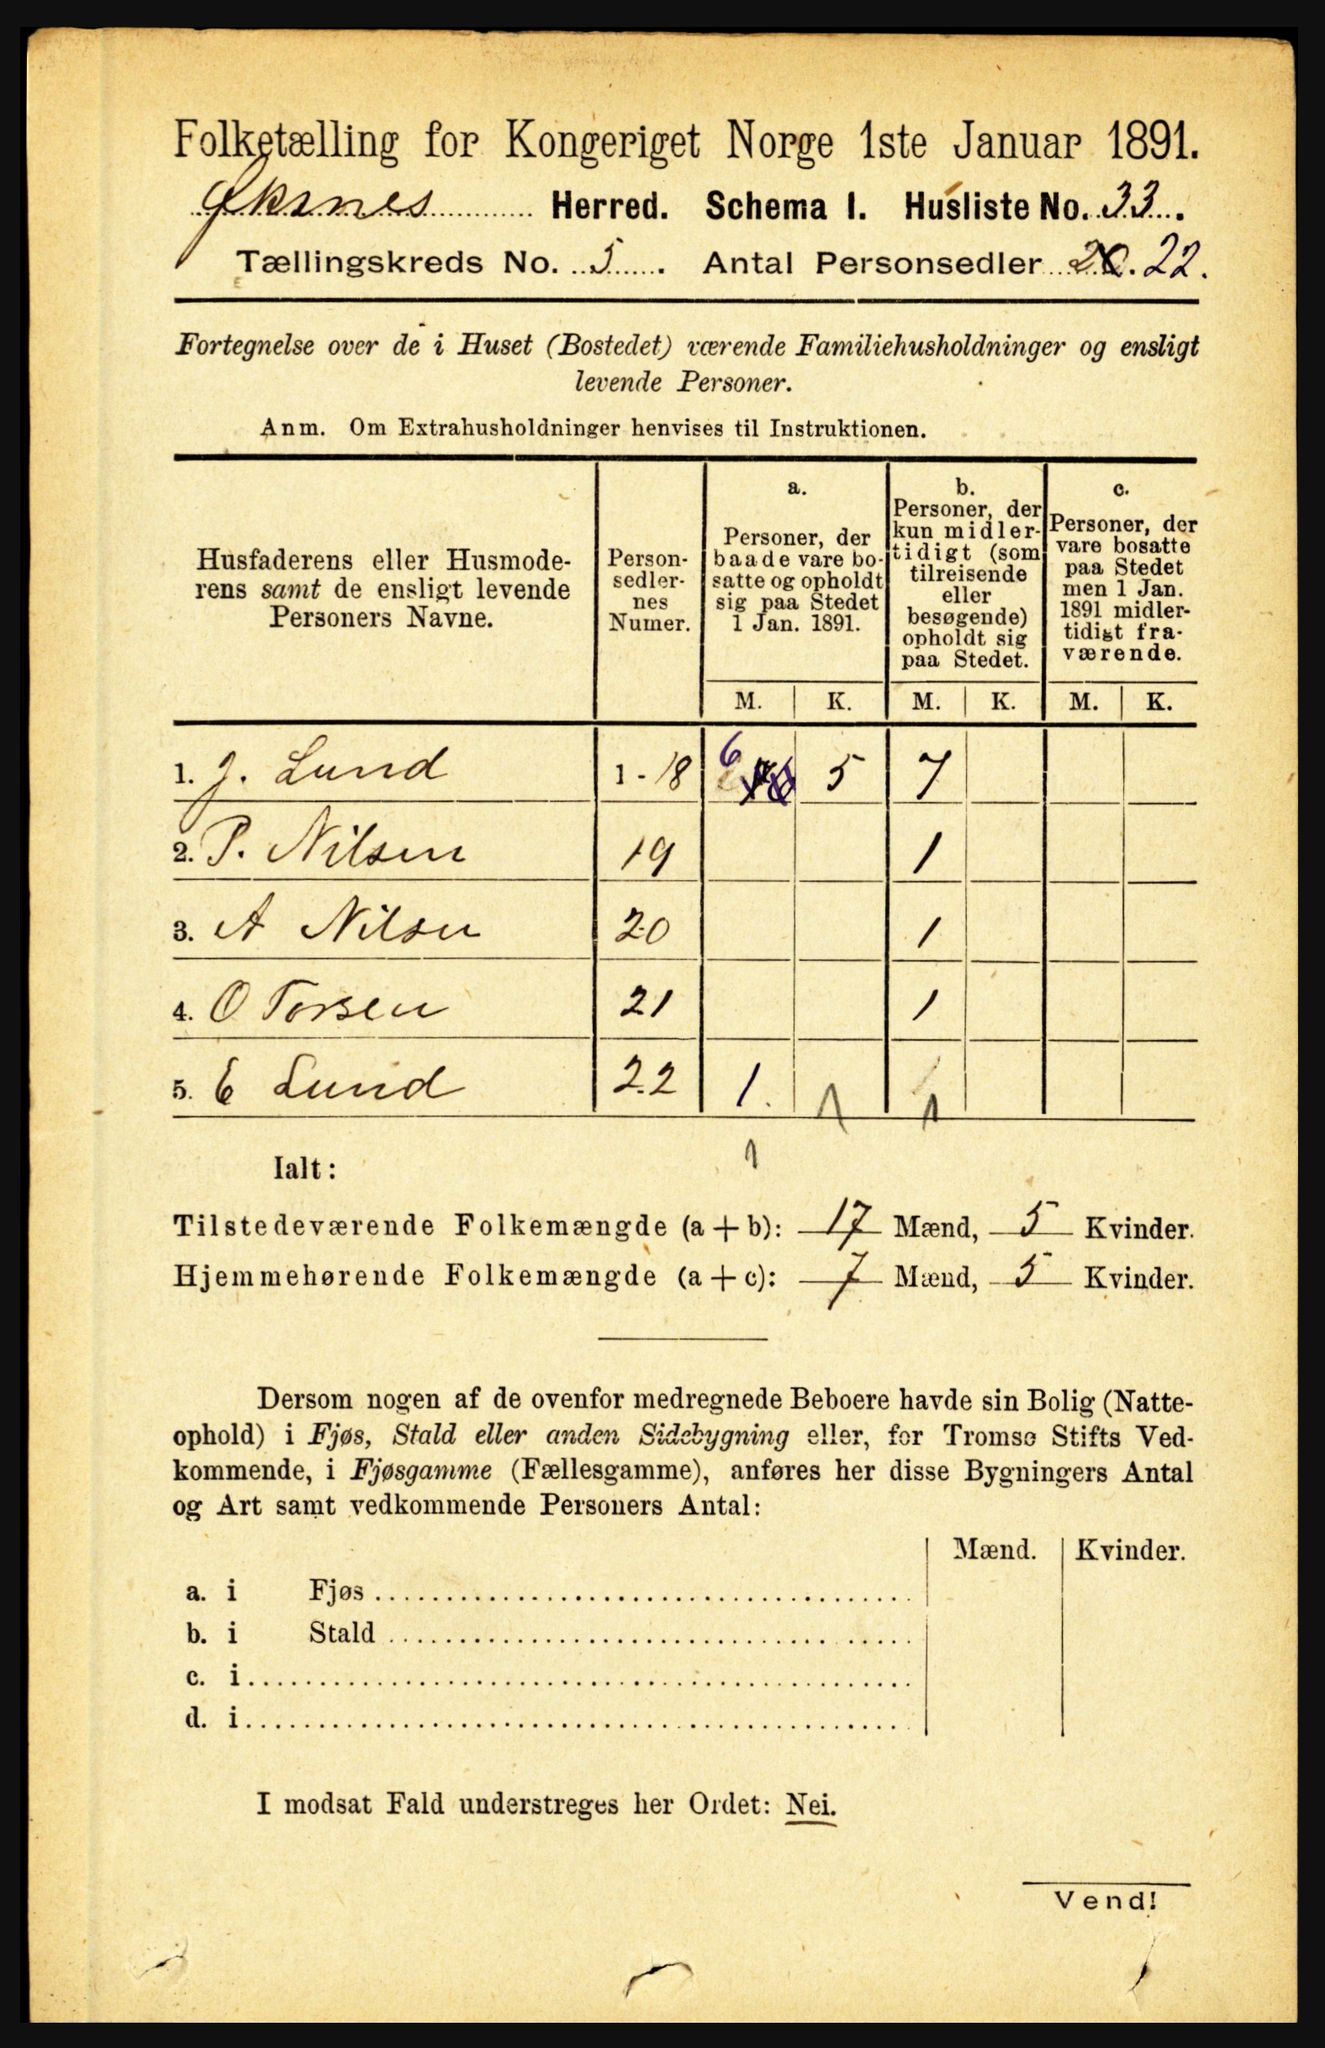 Folketælling for Kongeriget Norge 1ste Januar 1891.
Øksnes Herred. Schema I. Husliste No. 33.
Tællingskreds No. 5. Antal Personsedler 22.
Fortegnelse over de i Huset (Bostedet) værende Familiehusholdninger og ensligt
levende Personer.
Anm. Om Extrahusholdninger henvises til Instruktionen.
Husfaderens eller Husmode-
rens samt de ensligt levende
Personers Navne.
Person-
sedler-
nes
Numer.
a.
Personer, der
baade vare bo-
satte og opholdt
sig paa Stedet
1 Jan. 1891.
b.
Personer, der
kun midler-
tidigt (som
tilreisende
eller
besøgende)
opholdt sig
paa Stedet.
c.
Personer, der
vare bosatte
paa Stedet
men 1 Jan.
1891 midler-
tidigt fra-
værende.
M. K. M. K. M. K.
1. J. Lund 1 - 18 6 5 7
2. P. Nilsen 19 1
3. A Nilsen 20 1
4. O Torsen 21 1
5. E Lund 22 1.
Ialt:
Tilstedeværende Folkemængde (a + b): 17 Mænd, 5 Kvinder.
Hjemmehørende Folkemængde (a + c): 7 Mænd, 5 Kvinder.
Dersom nogen af de ovenfor medregnede Beboere havde sin Bolig (Natte-
ophold) i Fjøs, Stald eller anden Sidebygning eller, for Tromsø Stifts Ved-
kommende, i Fjøsgamme (Fællesgamme), anføres her disse Bygningers Antal
og Art samt vedkommende Personers Antal:
Mænd. Kvinder.
a. i Fjøs
b. i Stald
c. i
d. i
I modsat Fald understreges her Ordet: Nei.
Vend!